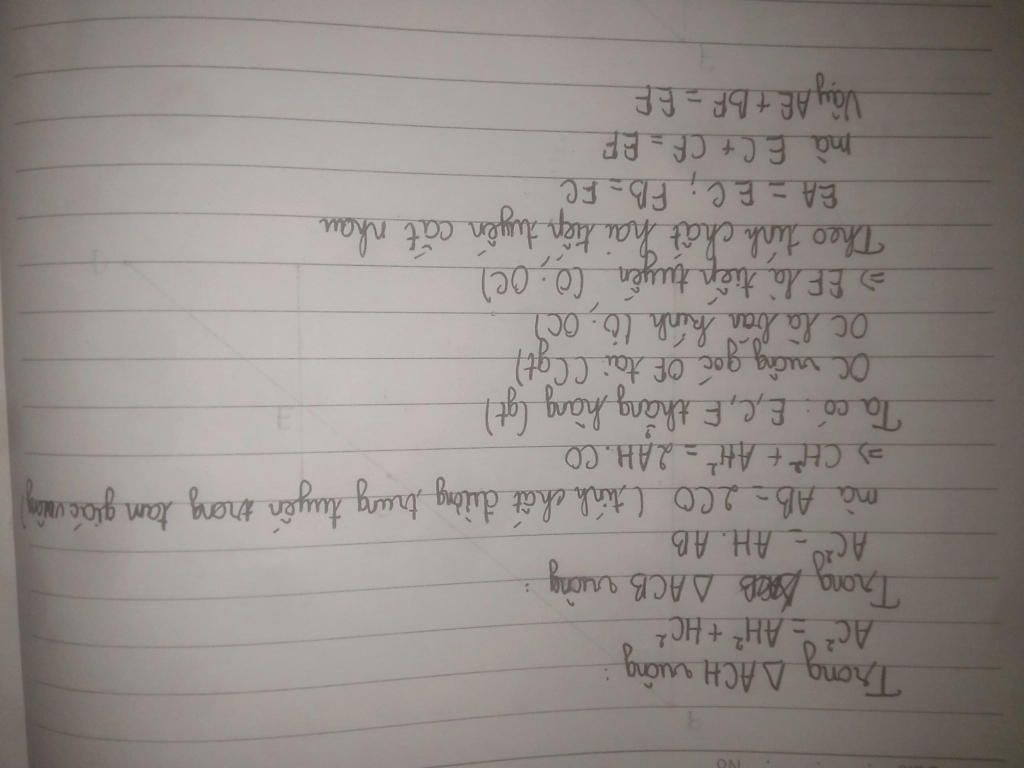 Trong △ ACH vuông:
AC² = AH² + HC²
Trong △ ACB vuông:
AC² = AH. AB
mà AB = 2CO (tính chất đường trung tuyến trong tam giác vuông)
=> CH² + AH² = 2AH.CO
Ta có: E, C, F thẳng hàng (gt)
OC vuông góc EF tại C (gt)
OC là bán kính (O; OC)
=> EF là tiếp tuyến (O; OC)
Theo tính chất hai tiếp tuyến cắt nhau
EA = EC; FB = FC
mà EC + CF = EF
Vậy AE + BF = EF